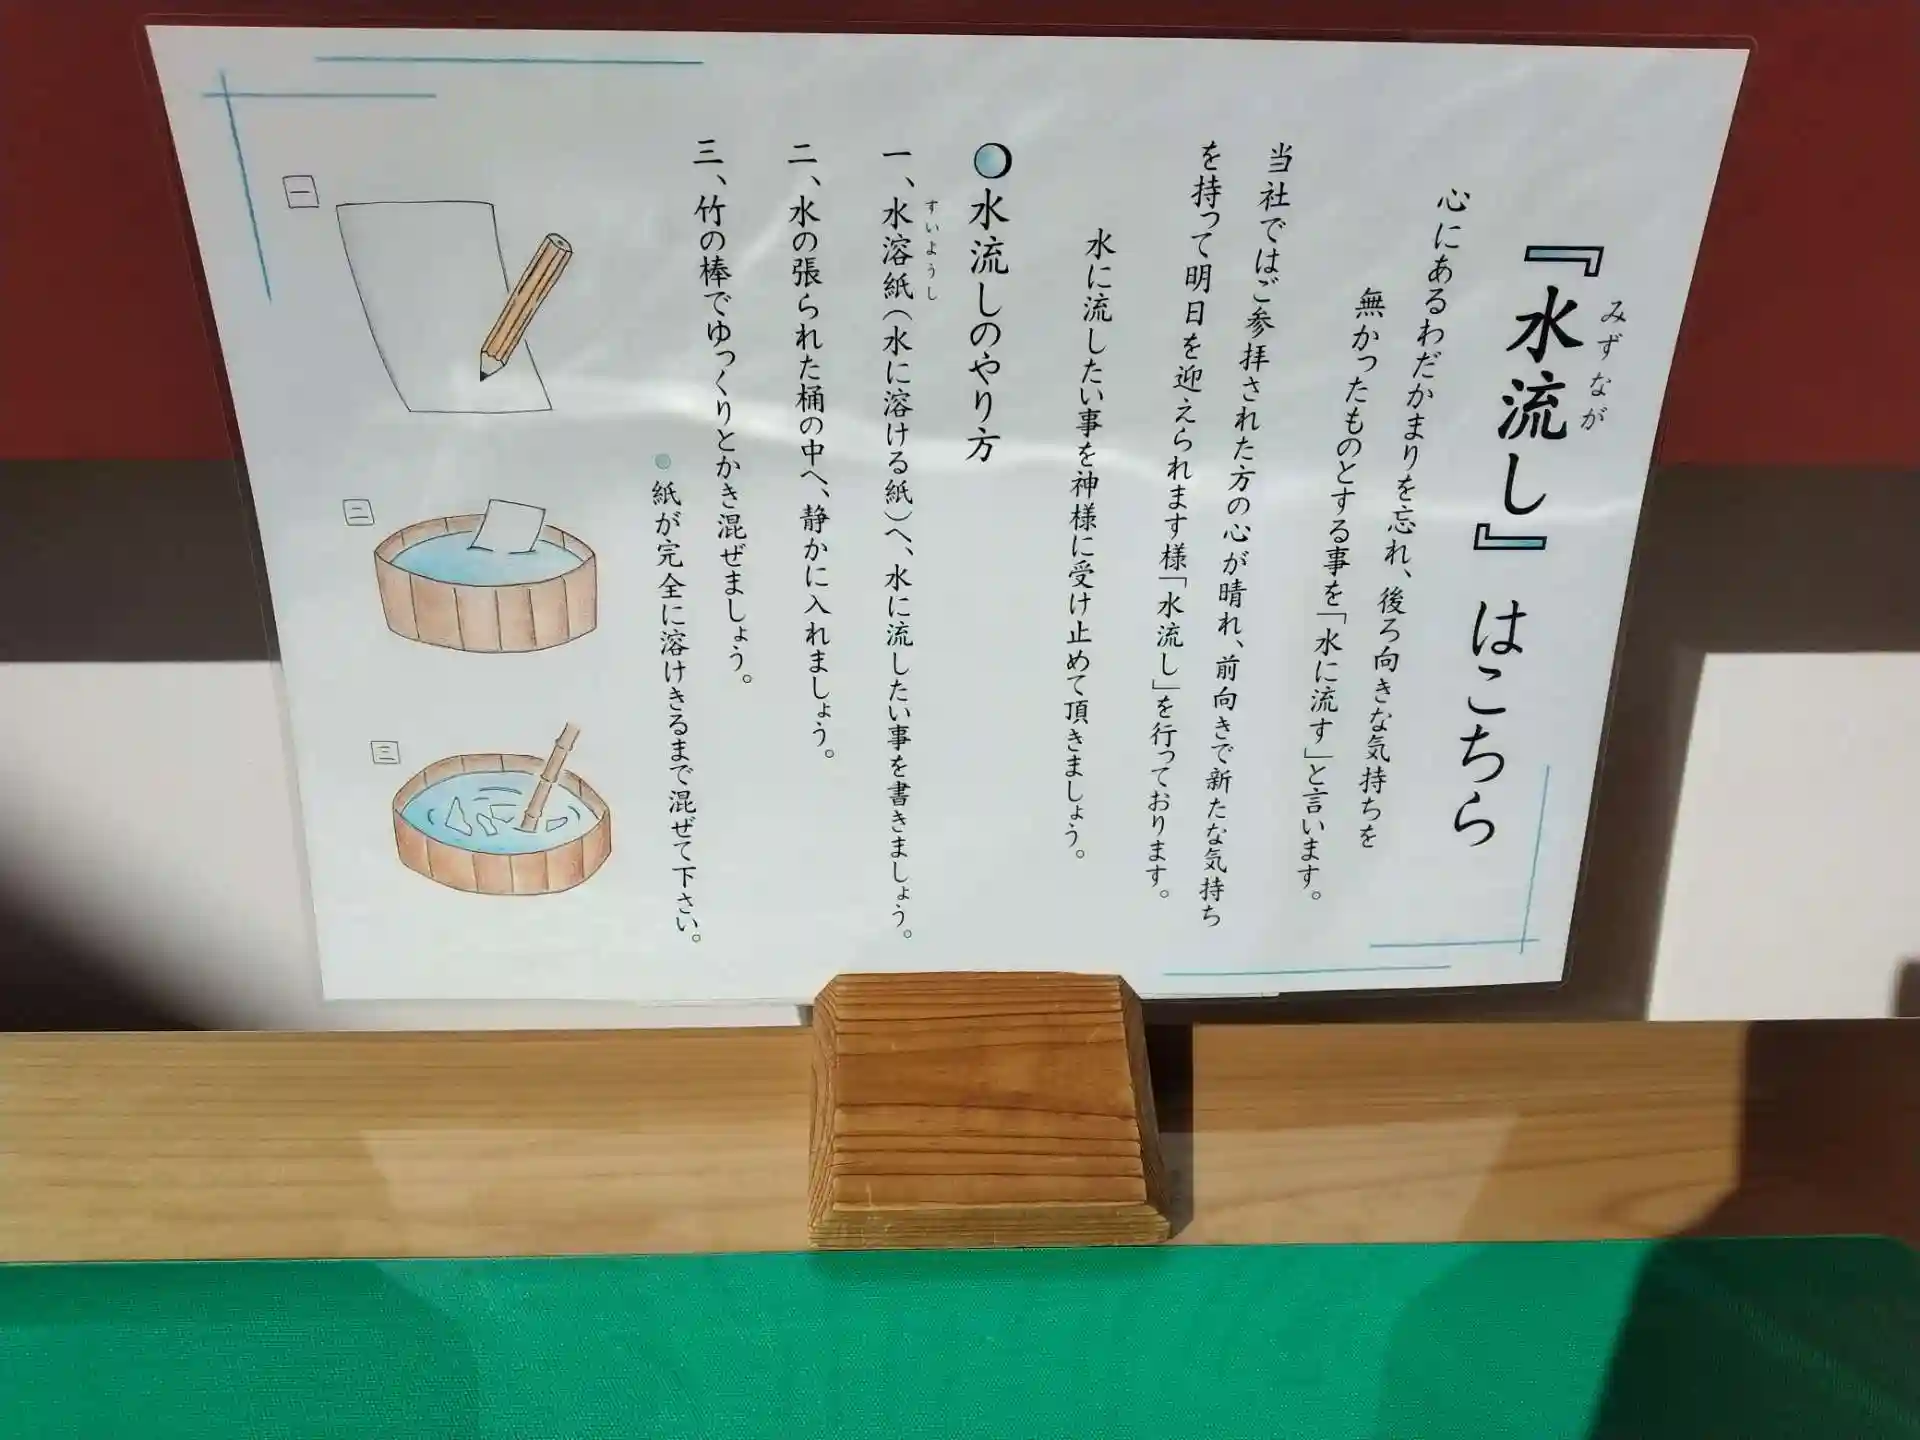 『水流し』はこちら
みずなが
心にあるわだかまりを忘れ、後ろ向きな気持ちを
無かったものとする事を「水に流す」と言います。
当社ではご参拝された方の心が晴れ、前向きで新たな気持ち
を持って明日を迎えられます様「水流し」を行っております。
水に流したい事を神様に受け止めて頂きましょう。
●水流しのやり方
すいようし
一、水溶紙(水に溶ける紙)へ、水に流したい事を書きましょう。
二、水の張られた桶の中へ、静かに入れましょう。
三、竹の棒でゆっくりとかき混ぜましょう。
●紙が完全に溶けきるまで混ぜて下さい。
一
二
三